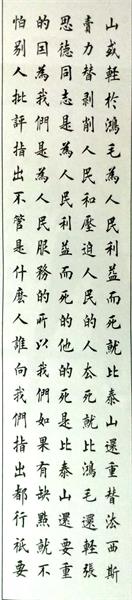 山或輕於鴻毛為人民利益而死就比泰山還重替法西斯
賣力替剝削人民和壓迫人民的人去死就比鴻毛還輕張
思德同志是為人民利益而死的他的死是比泰山還要重
的因為我們是為人民服務的所以我們如果有缺點就不
怕別人批評指出不管是什麼人誰向我們指出都行祇要